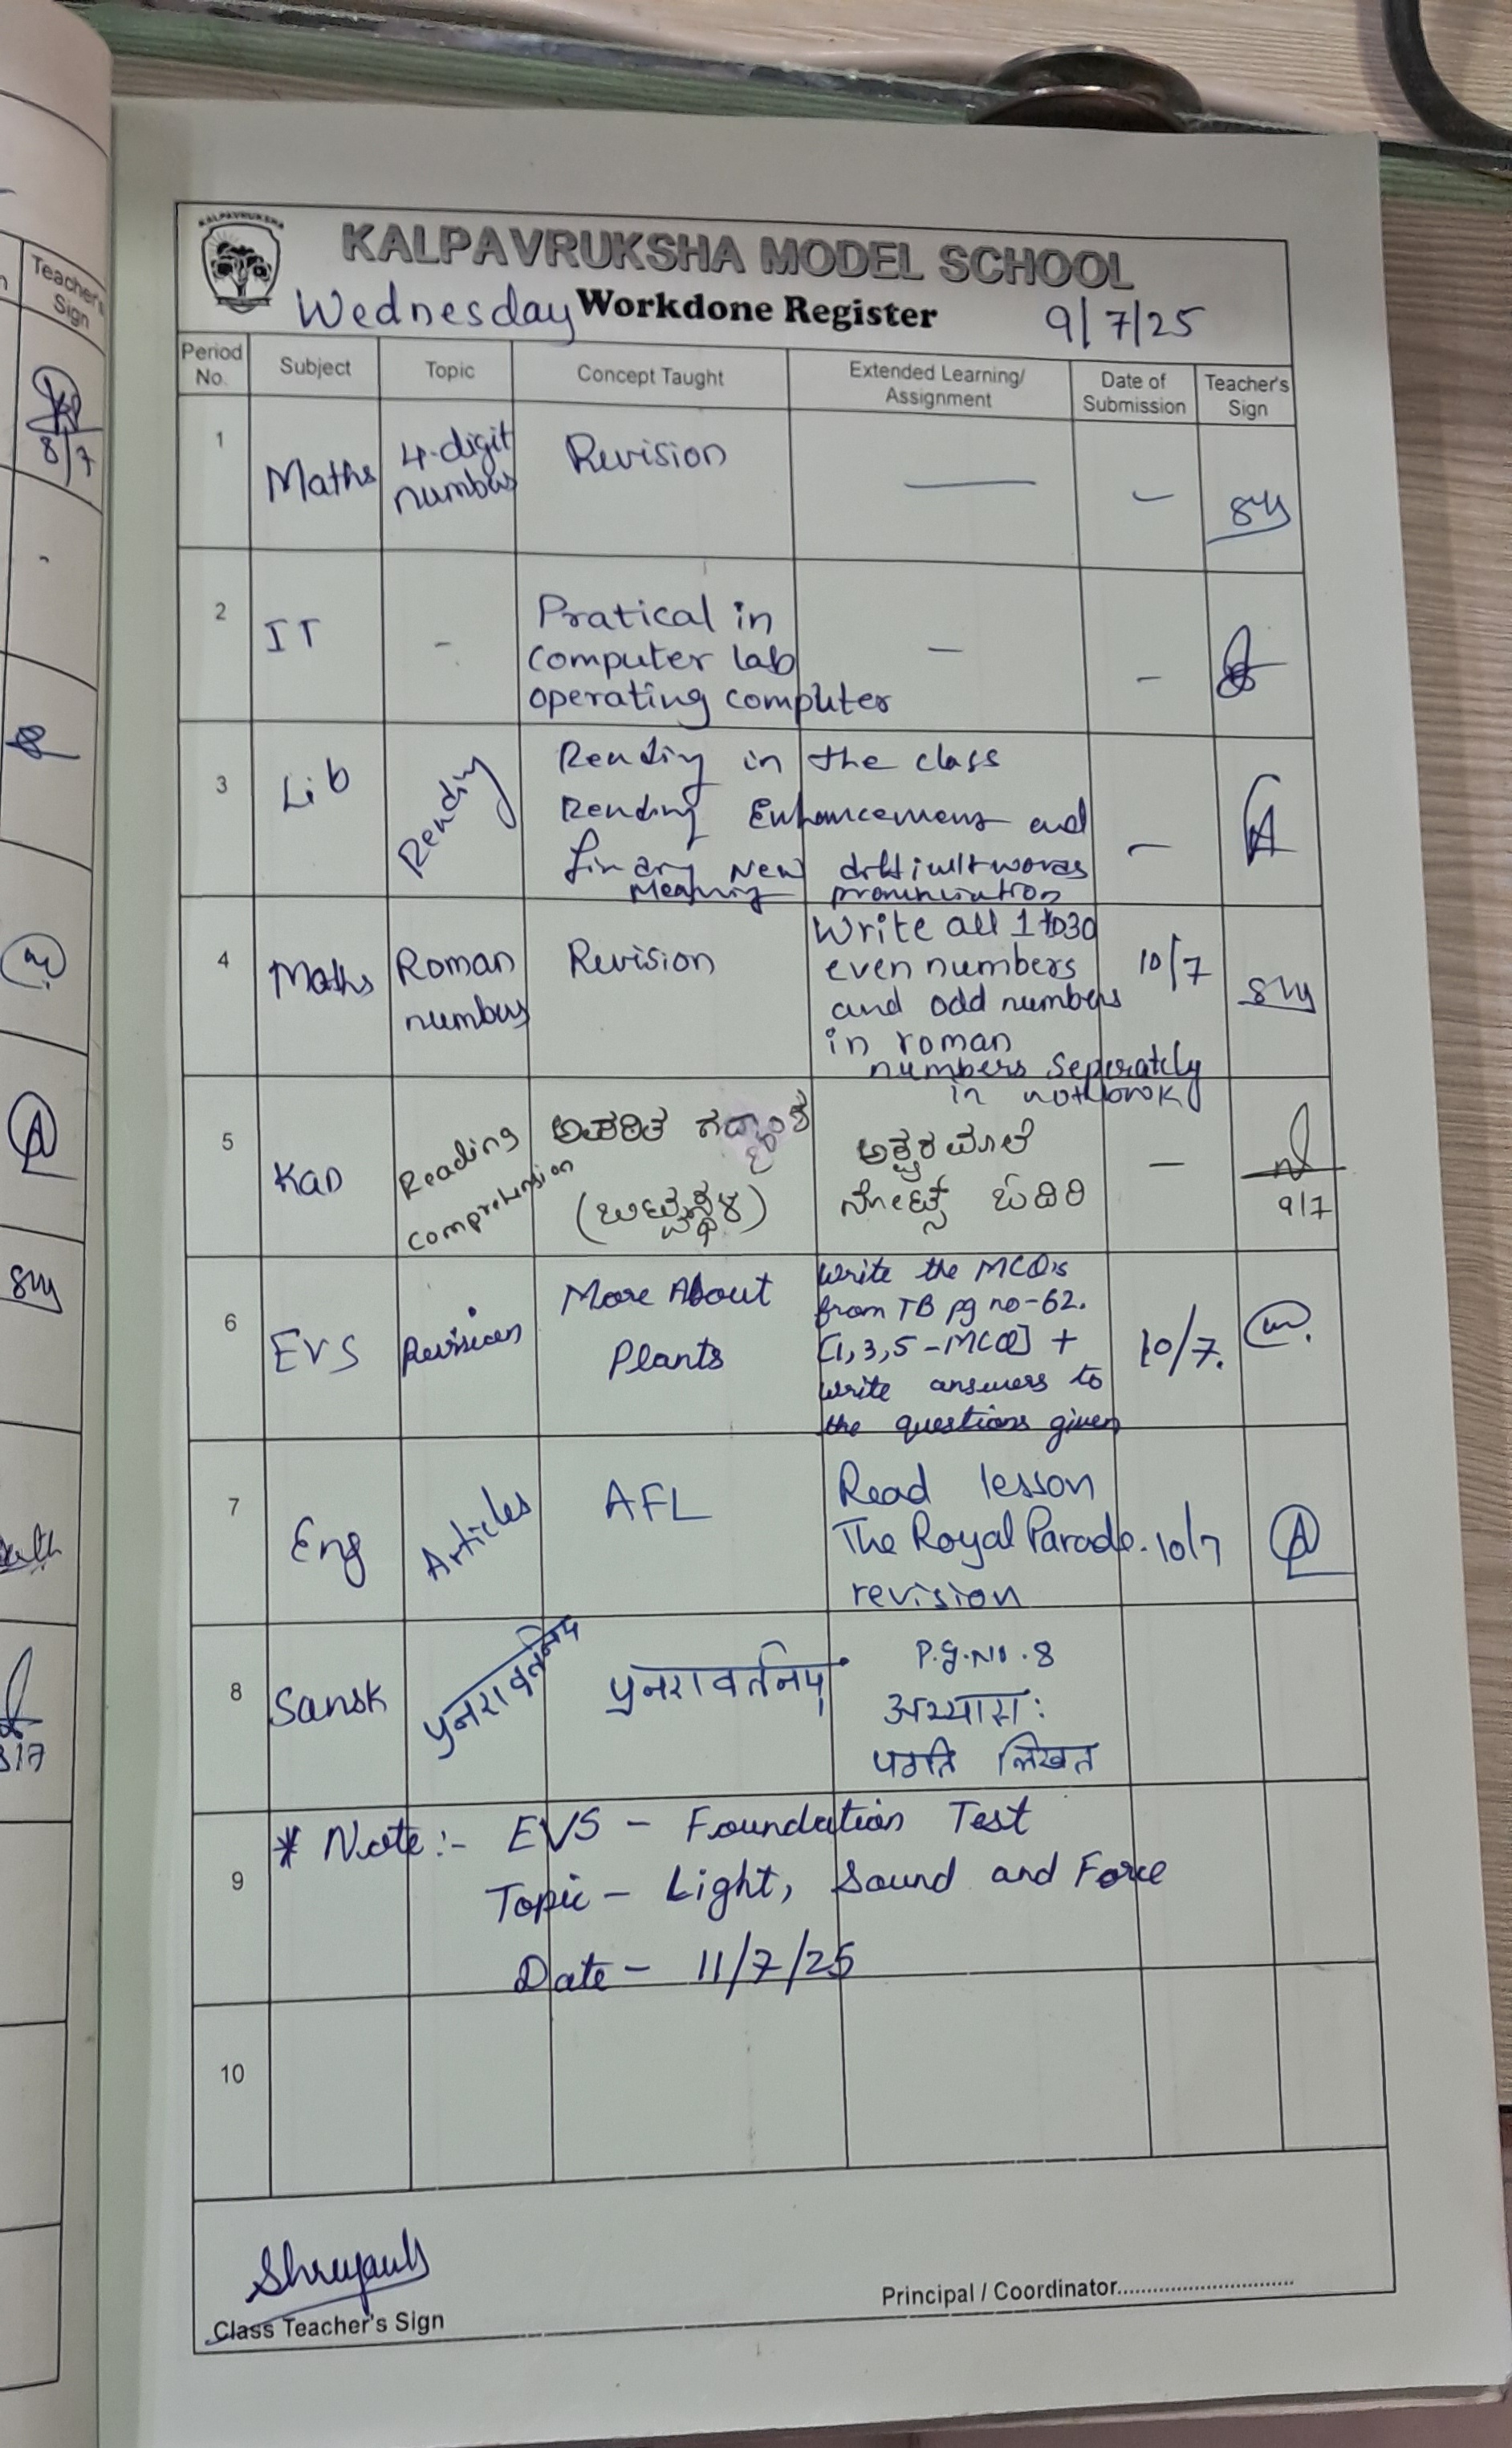 KALPAVRUKSHA
KALPAVRUKSHA MODEL SCHOOL
Wednesday Workdone Register 9/7/25
Period No. Subject Topic Concept Taught Extended Learning/ Assignment Date of Submission Teacher's Sign
1 Maths 4-digit numbers Revision — –
2 IT - Pratical in computer lab operating computer – –
3 Lib Reading Reading in the class
Reading Enhancement and
finding New difficult words
Meaning pronunciation –
4 Maths Roman numbers Revision Write all 1 to 30
even numbers
and odd numbers
in roman
numbers Seperately
in notbook 10/7
5 Kan Reading comprehension ಅಪಠಿತ ಗದ್ಯಾಂಶ
ಅಕ್ಷರಮಾಲೆ
ನೋಟ್ಸ್ ಓದಿರಿ – 9/7
6 EVS Revision More About
Plants
Write the MCQ's
from TB pg no-62.
[1,3,5-MCQ] +
write answers to
the questions given 10/7.
7 Eng Articles AFL Read lesson
The Royal Parade.
revision 10/7
8 Sansk पुनरावर्तनम् पुनरावर्तनम् P.g.No.8
अभ्यास:
पठति लिखत
9 * Note:- EVS - Foundation Test
Topic - Light, Sound and Force
Date - 11/7/25
10
Class Teacher's Sign
Principal / Coordinator
Teacher's
Sign
8/7